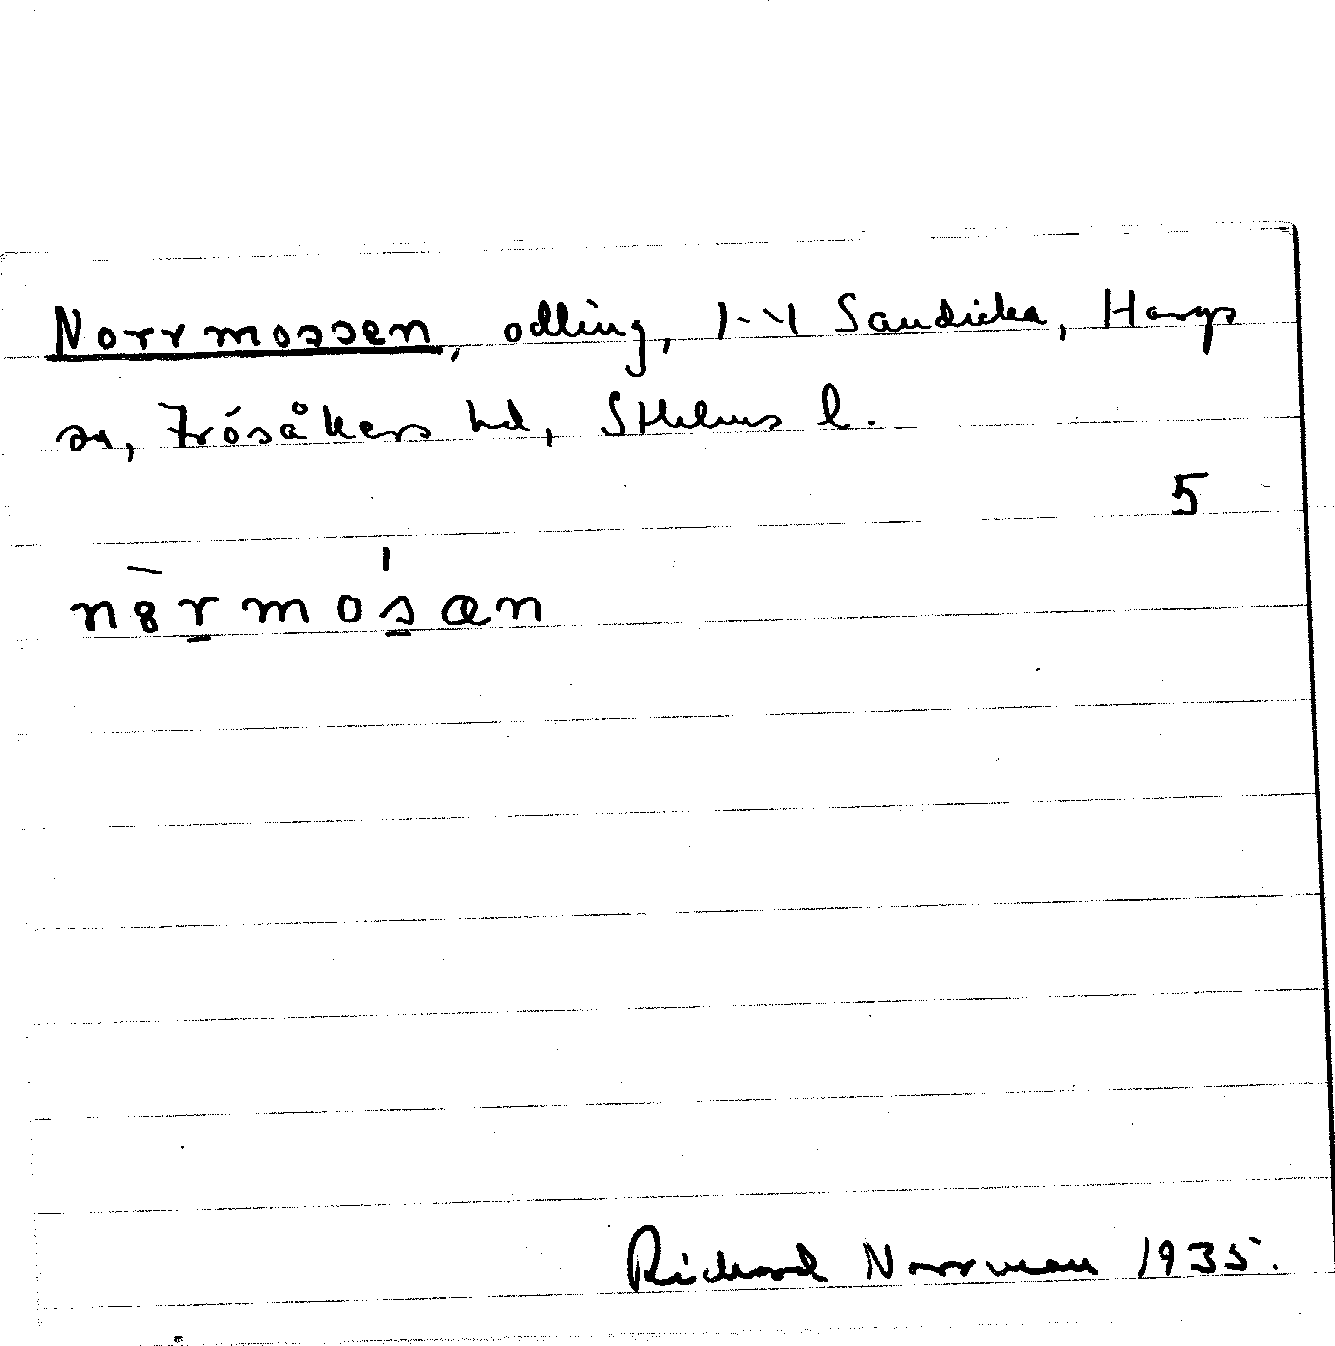 Norrmossen, odling, Sandika, Hargs
sn, Frösåkers hd, Sthlms l.
5
Richard Norrman 1935.